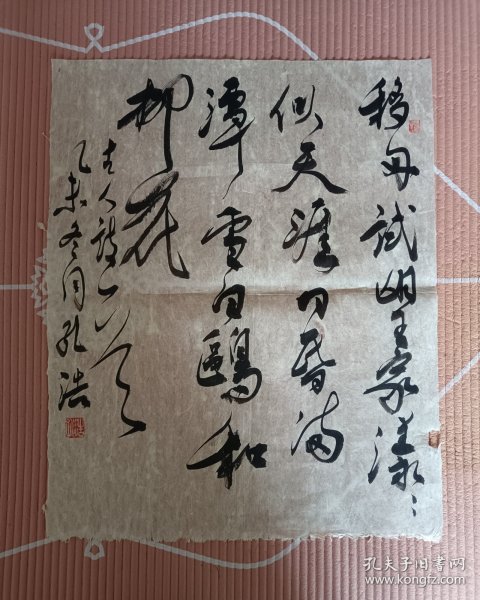 移舟试问王家渡渺渺
似天涯日昏满
潭雪白鸥和
柳花
古人诗一首
乙未冬月孔浩
孔夫子旧书网
www.kongfz.com